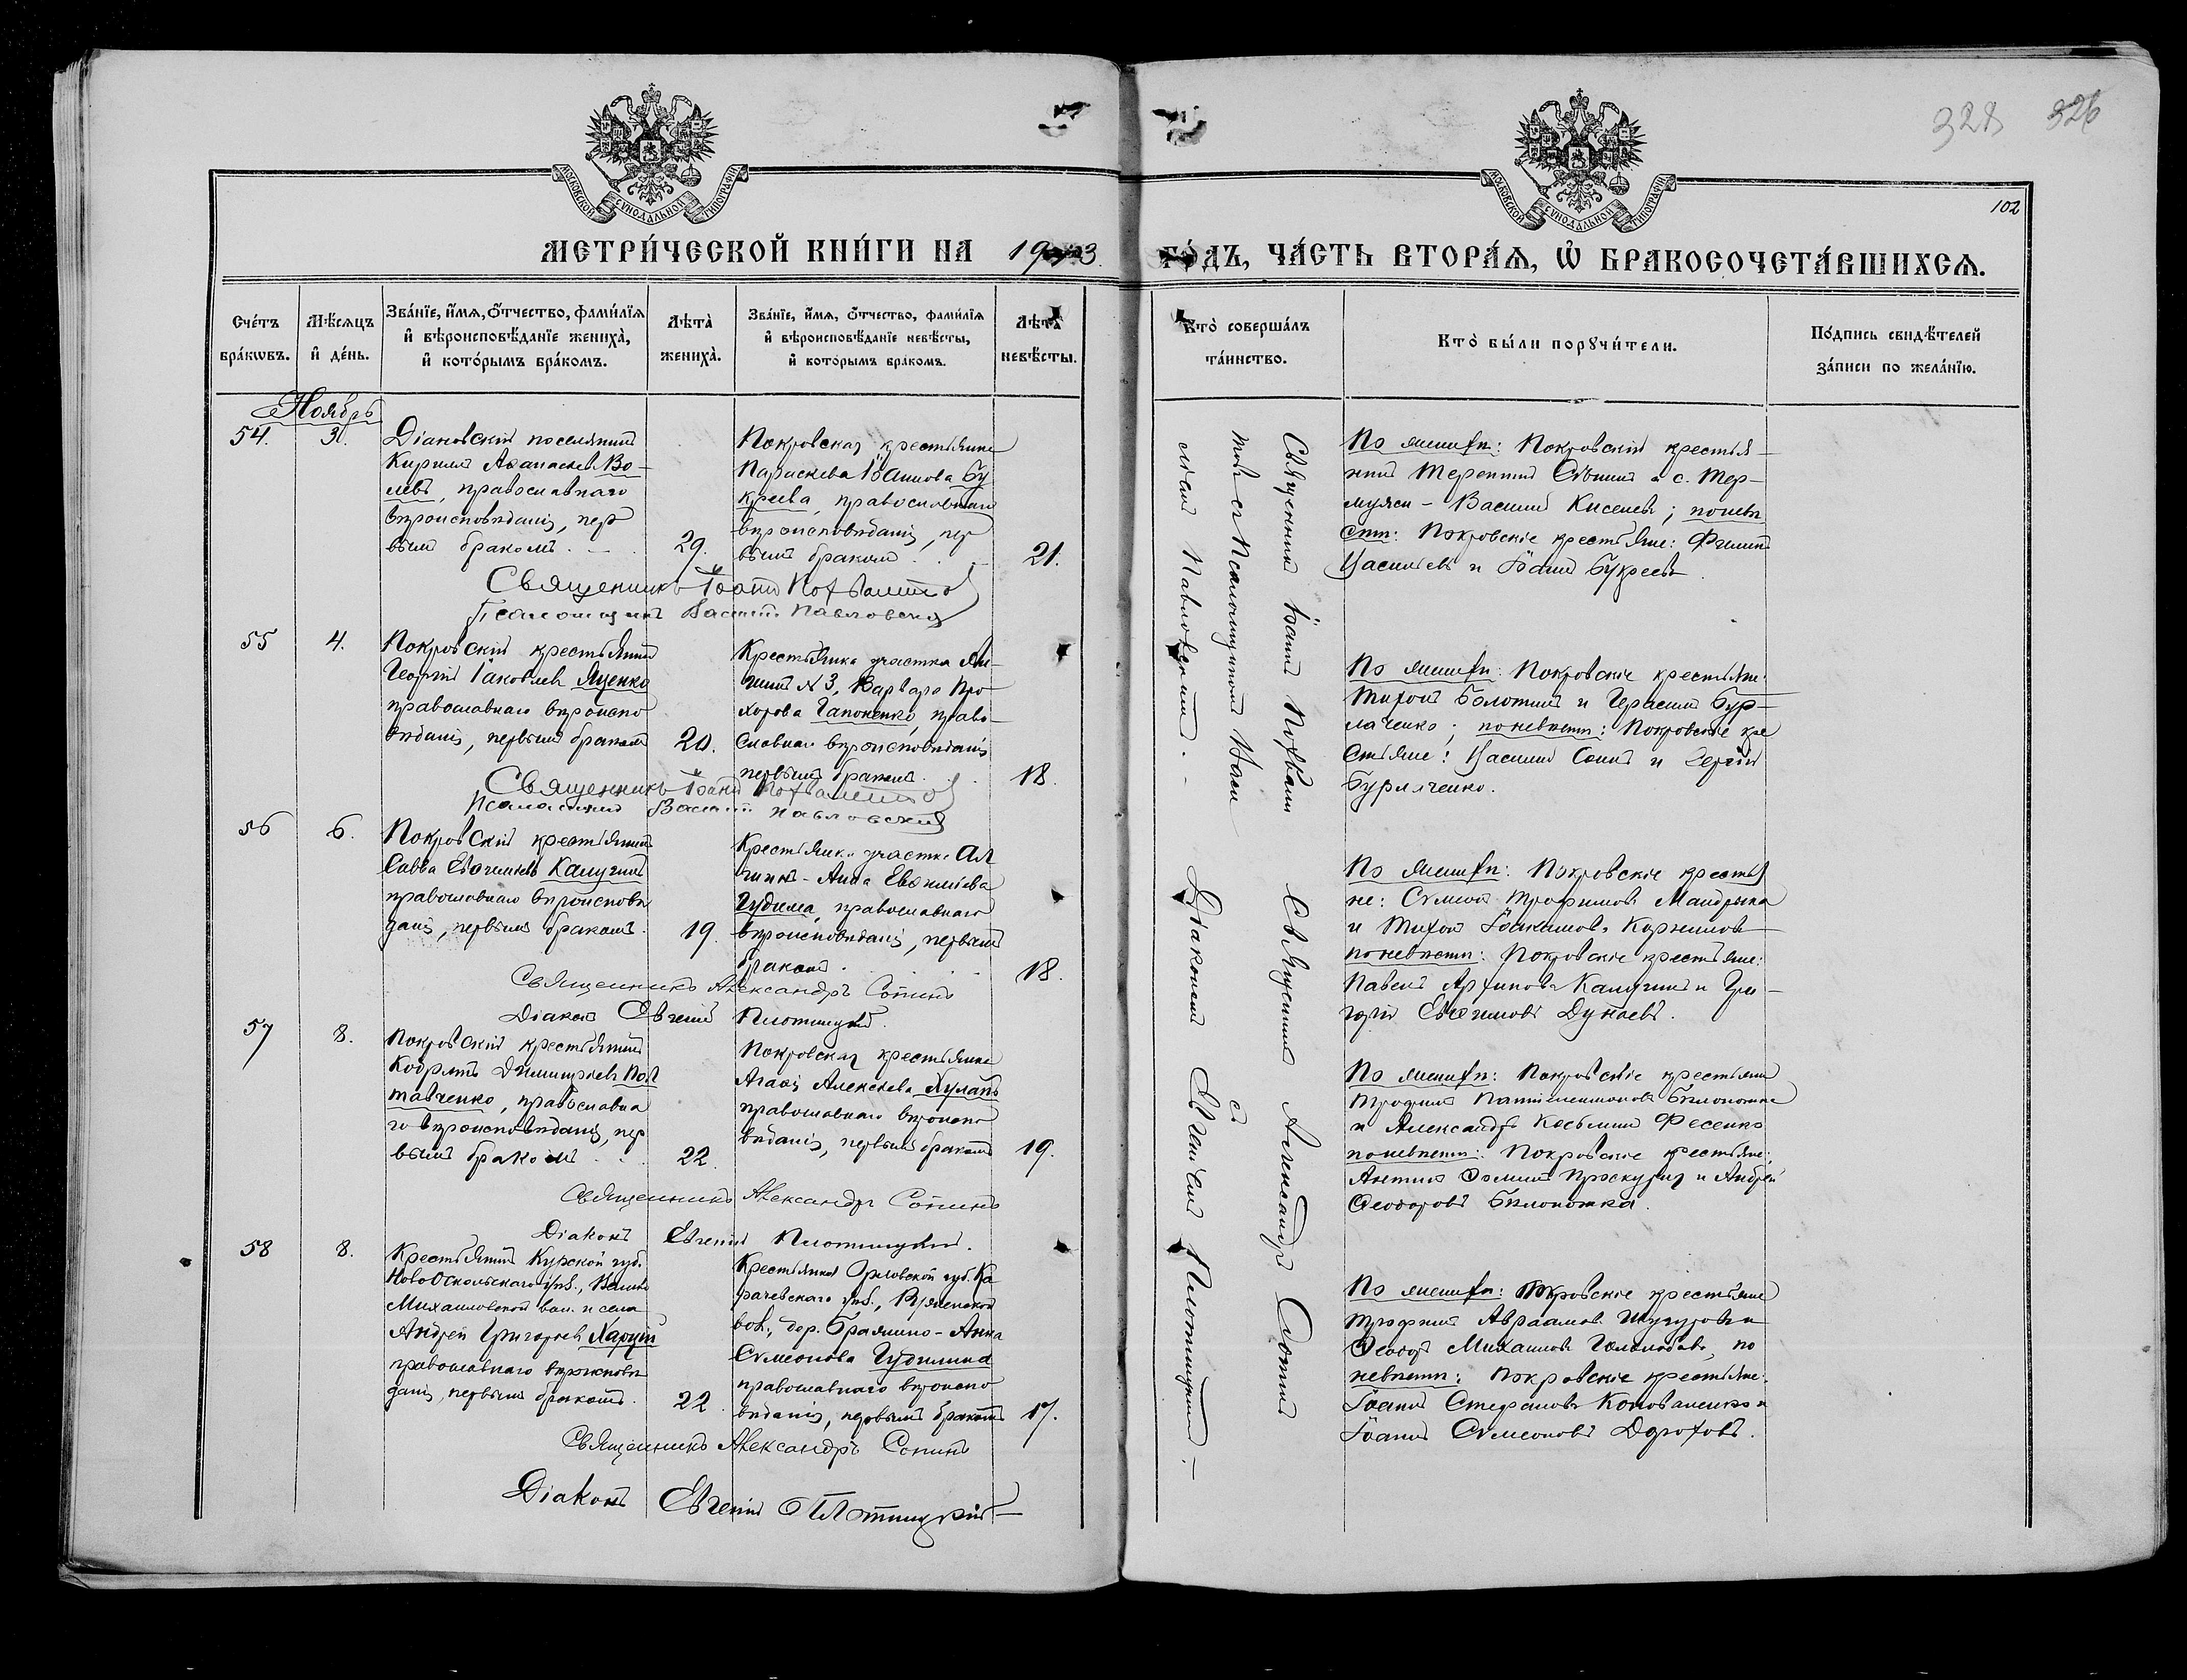 328 326
102
МОСКОВСКОЙ СУНОДАЛЬНОЙ ТИПОГРАФІИ
МОСКОВСКОЙ СУНОДАЛЬНОЙ ТИПОГРАФІИ
МЕТРИ́ЧЕСКОЙ КНИ́ГИ НА 1903. ГО́ДЪ, ЧА́СТЬ ВТОРА́Ѧ, Ѽ БРАКОСОЧЕТА́ВШИХСѦ.
Сче́тъ бра́кѡвъ.
Мѣ́сяцъ и҆ де́нь.
Зва́нїе, и҆́мѧ, ѻ҆́тчество, фами́лїѧ
и҆ вѣроисповѣ́данїе жениха̀,
и҆ кото́рымъ бра́комъ.
Лѣта̀ жениха̀.
Зва́нїе, и҆́мѧ, ѻ҆́тчество, фами́лїѧ
и҆ вѣроисповѣ́данїе невѣ́сты,
и҆ кото́рымъ бра́комъ.
Лѣта̀ невѣ́сты.
Кто̀ соверша́лъ та́инство.
Кто̀ бы́ли порꙋчи́тели.
По́дпись свидѣ́телей
за́писи по жела́нїю.
Ноябрь
54. 3.
Діановскій поселянинъ
Кириллъ Аѳанасіевъ Во-
левъ, православнаго
вѣроисповѣданія, пер
вымъ бракомъ.
29.
Покровская крестьянка
Параскева Іоаннова Бу
креева, православнаго
вѣроисповѣданія, пер
вымъ бракомъ
21.
По женихѣ: Покровскій крестья-
нинъ Терентій и с. Тер-
- Василій Киселевъ; по невѣ
стѣ: Покровскіе крестьяне: Филиппъ
Васильевъ и Іоаннъ Букреевъ.
Священникъ Іоаннъ
Псаломщикъ Василій Павловскій
55 4.
Покровскій крестьянинъ
Георгій Іаковлевъ Яценко
православнаго вѣроиспо
вѣданія, первымъ бракомъ
20.
Крестьянка участка
№ 3, Варвара Про
хорова Гапоненко, право-
славнаго вѣроисповѣданія
первымъ бракомъ.
18.
По женихѣ: Покровскіе крестьяне:
Тихонъ Болотинъ и Герасимъ Бур-
лаченко; по невѣстѣ: Покровскіе кре
стьяне: Василій и Сергій
Бурлаченко.
Священникъ Іоаннъ
Псаломщикъ Василій Павловскій
56 6.
Покровскій крестьянинъ
Савва Евѳиміевъ Калугинъ
православнаго вѣроисповѣ
данія, первымъ бракомъ.
19.
Крестьянка участка
- Анна Евѳиміева
Гудима, православнаго
вѣроисповѣданія, первымъ
бракомъ.
18.
По женихѣ: Покровскіе крестья
не: Сѵмеонъ Трофимовъ Мандрыка
и Тихонъ Іоакимовъ Корниловъ
по невѣстѣ: Покровскіе крестьяне:
Павелъ Архиповъ Калугинъ и Гри-
горій Евѳимовъ Дунаевъ.
Священникъ Александръ Сопинъ
Діаконъ Евгеній Плотницкій.
57 8.
Покровскій крестьянинъ
Кодратъ Димитріевъ Пол
тавченко, православна
го вѣроисповѣданія, пер
вымъ бракомъ
22.
Покровская крестьянка
Агаѳія Алексіева
православнаго вѣроиспо
вѣданія, первымъ бракомъ
19.
По женихѣ: Покровскіе крестьяне
Трофимъ Пантелеимоновъ Бѣлоножка
и Александръ Косьминъ Фесенко
по невѣстѣ: Покровскіе крестьяне:
Антипъ Ѳоминъ Проскурня и Андрей
Ѳеодоровъ Бѣлоножка.
Священникъ Александръ Сопинъ
Діаконъ Евгеній Плотницкій.
58 8.
Крестьянинъ Курской губ.
Новооскольскаго уѣз., Велико
Михайловской вол. и села
Андрей Григорьевъ
православнаго вѣроисповѣ
данія, первымъ бракомъ.
22.
Крестьянка Орловской губ. Ка
рачевскаго уѣз.,
вол., дер. - Анна
Сѵмеонова Гудилина
православнаго вѣроиспо
вѣданія, первымъ бракомъ
17.
По женихѣ: Покровскіе крестьяне
Трофимъ Авраамовъ и
Ѳеодоръ Михаиловъ по
невѣстѣ: Покровскіе крестьяне:
Іоаннъ Стефановъ Коноваленко и
Іоаннъ Сѵмеоновъ Дороховъ.
Священникъ Александръ Сопинъ
Діаконъ Евгеній Плотницкій
Священникъ Іоаннъ
съ Псаломщикомъ Васи
ліемъ Павловскимъ.
Священникъ Александръ Сопинъ
съ
Діакономъ Евгеніемъ Плотницкимъ.